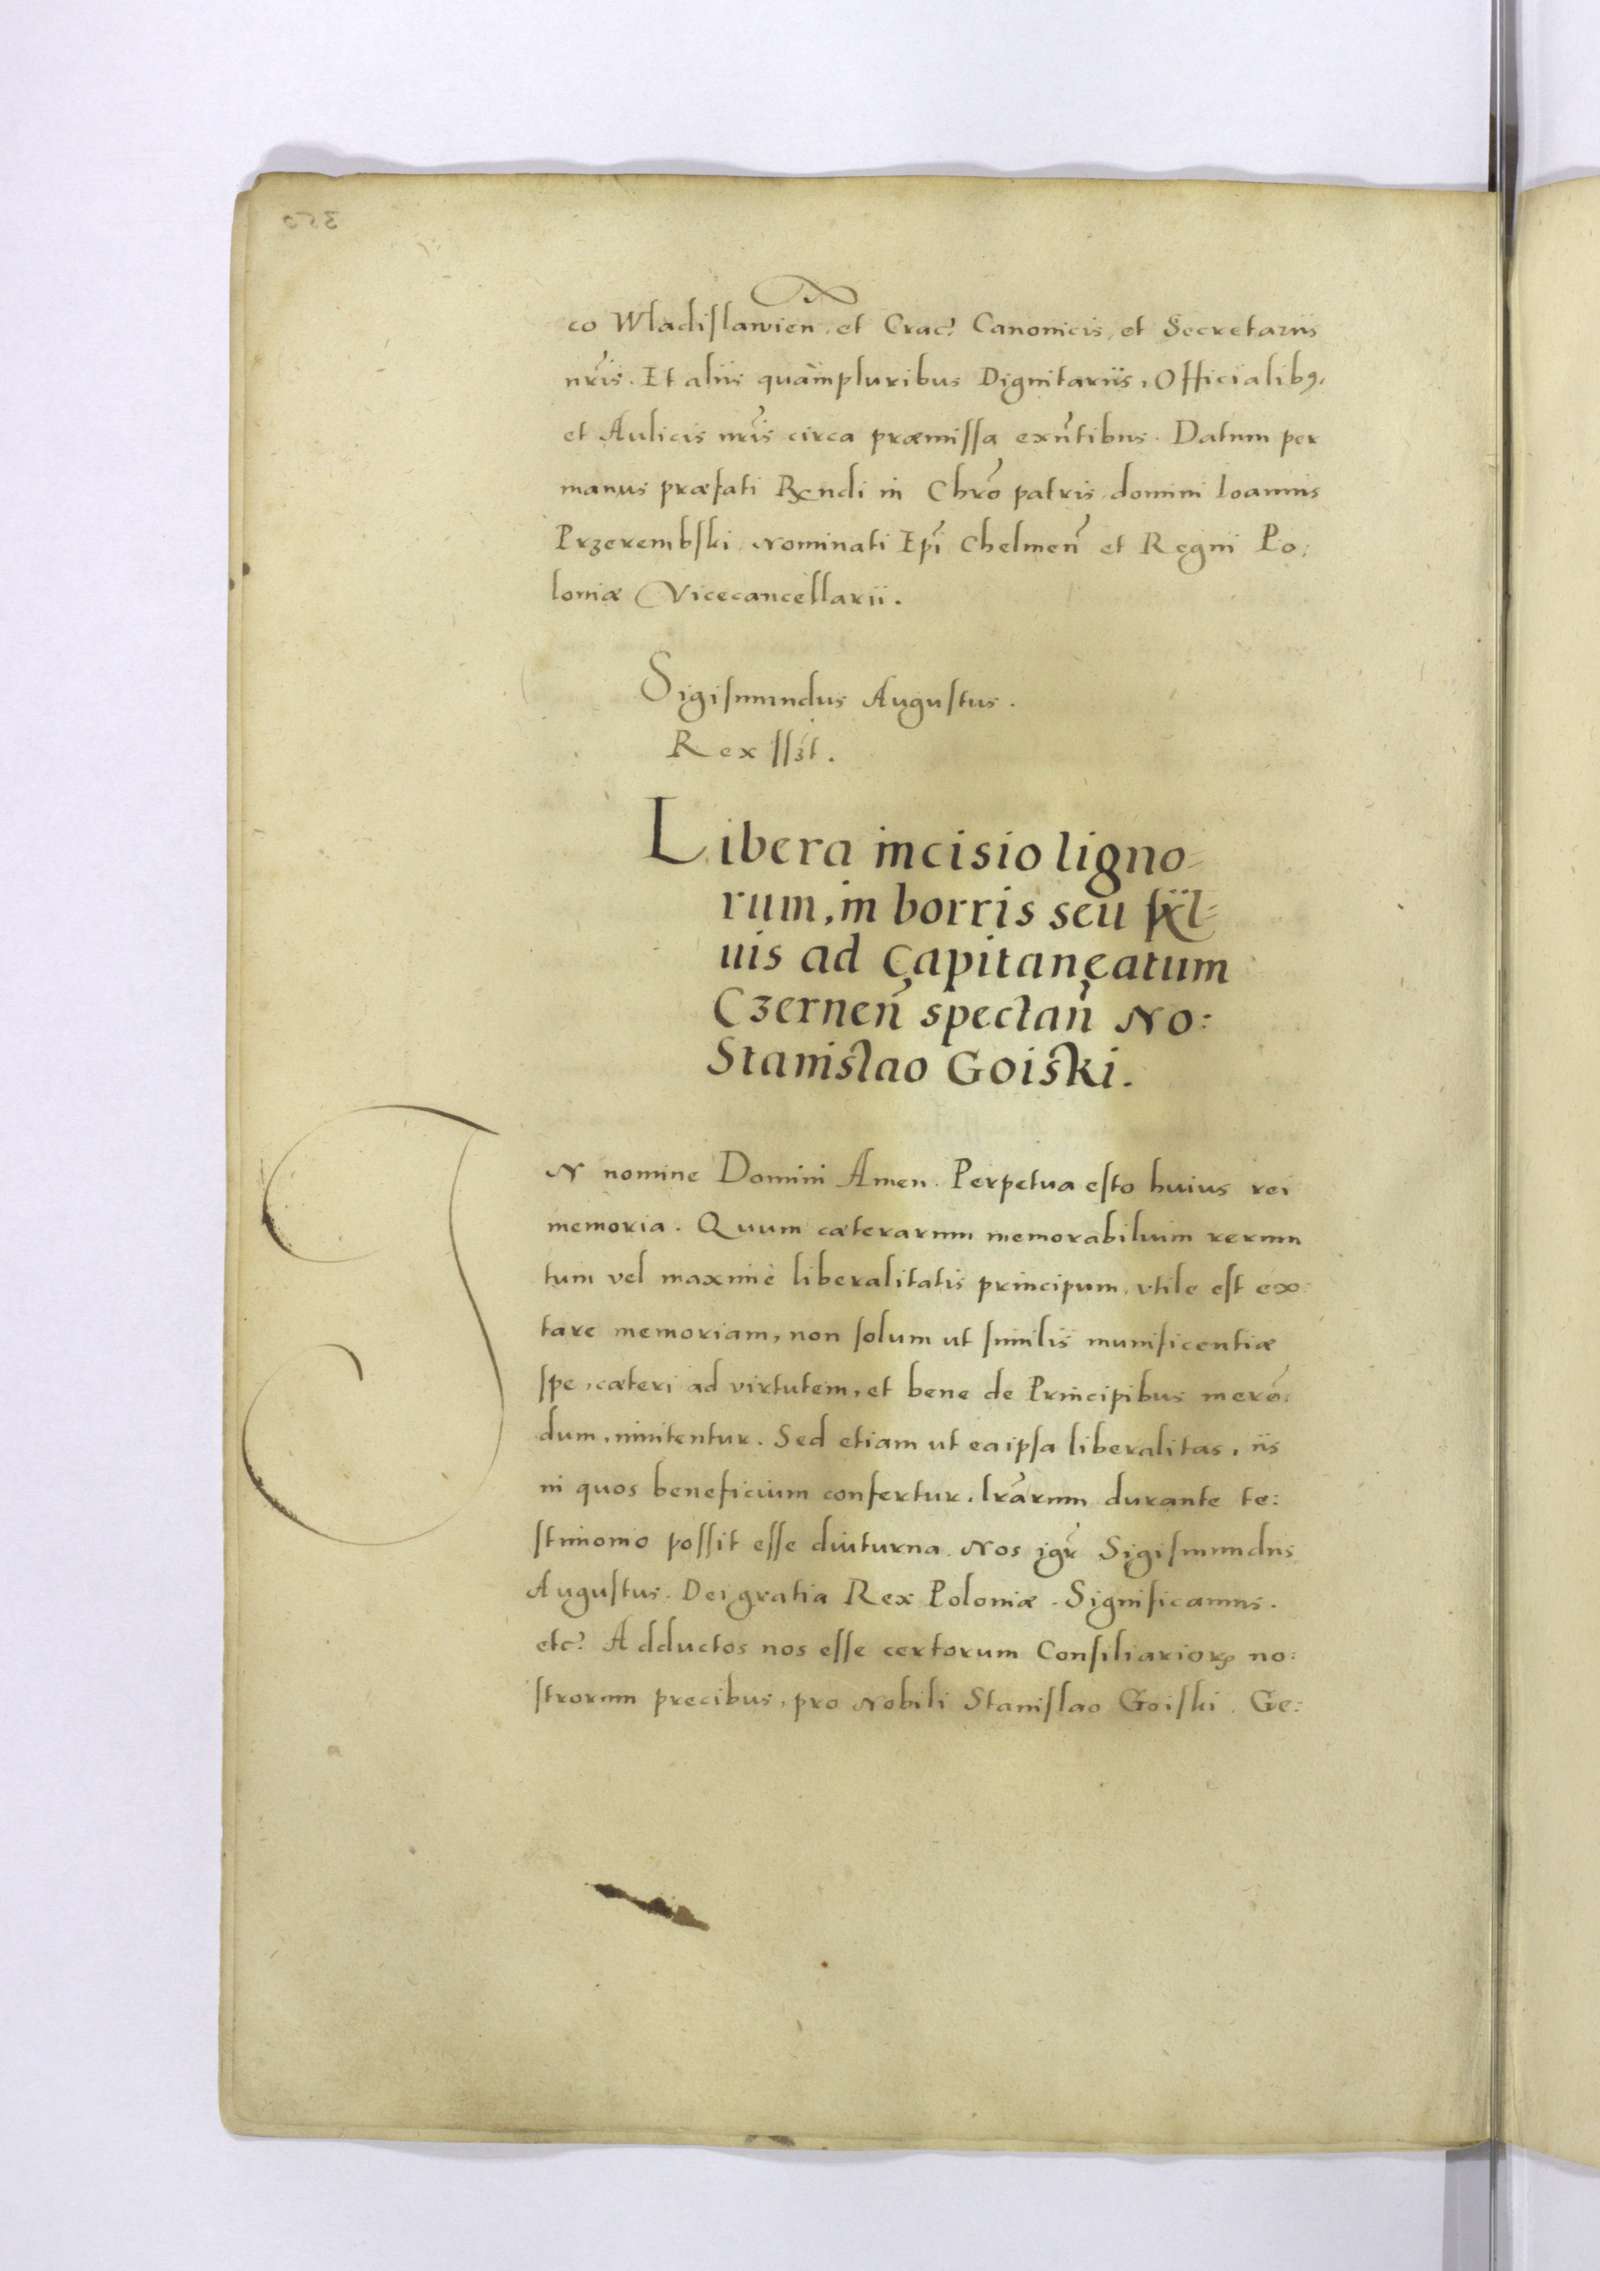 co Wladislawien. et Crac? Canonicis, et Secretariis
nr̃is. Et aliis quàmpluribus Dignitariis, Officialibꝰ,
et Aulicis nr̃is circa præmissa exñtibus. Datum per
manus præfati Rẽndi in Chr̃o patris domini Ioannis
Przerembski Nominati Ep̃i Chelmeñ et Regni Po:
loniæ Vicecancellarii.
Sigismundus Augustus.
Rex sszt.
Libera incisio ligno-
rum, in borris seu syl-
uis ad Capitaneatum
Czerneñ spectañ No:
Stanislao Goiski.
IN nomine Domini Amen. Perpetua esto huius rei
memoria. Quum cæterarum memorabilium rerum
tum vel maximè liberalitatis principum, vtile est ex:
tare memoriam, non solum ut similis munificentiæ
spe, cæteri ad virtutem, et bene de Principibus merẽ:
dum, innitentur. Sed etiam ut ea ipsa liberalitas, iis
in quos beneficium confertur, lr̃arum durante te:
stimonio possit esse diuturna. Nos igr̃ Sigismundus
Augustus. Dei gratia Rex Poloniæ. Significamus.
etc? Adductos nos esse certorum Consiliarioꝝ no:
strorum precibus, pro Nobili Stanislao Goiski. Ge: